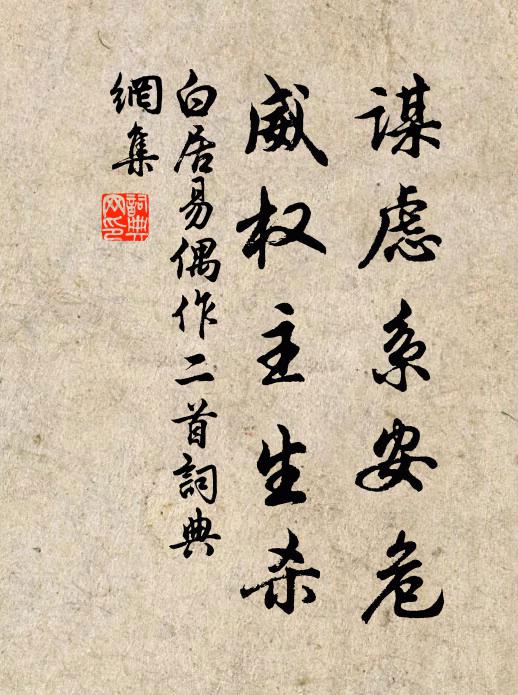 谋虑系安危
威权主生杀
白居易偶作二首詞典
網集
詞典
网印